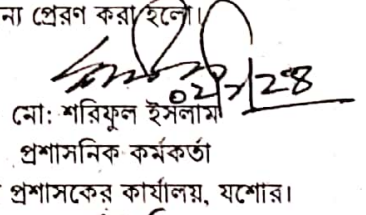 না প্রেরণ করা হলো।
মো: শরিফুল ইসলাম
প্রশাসনিক কর্মকর্তা
প্রশাসকের কার্যালয়, যশোর।